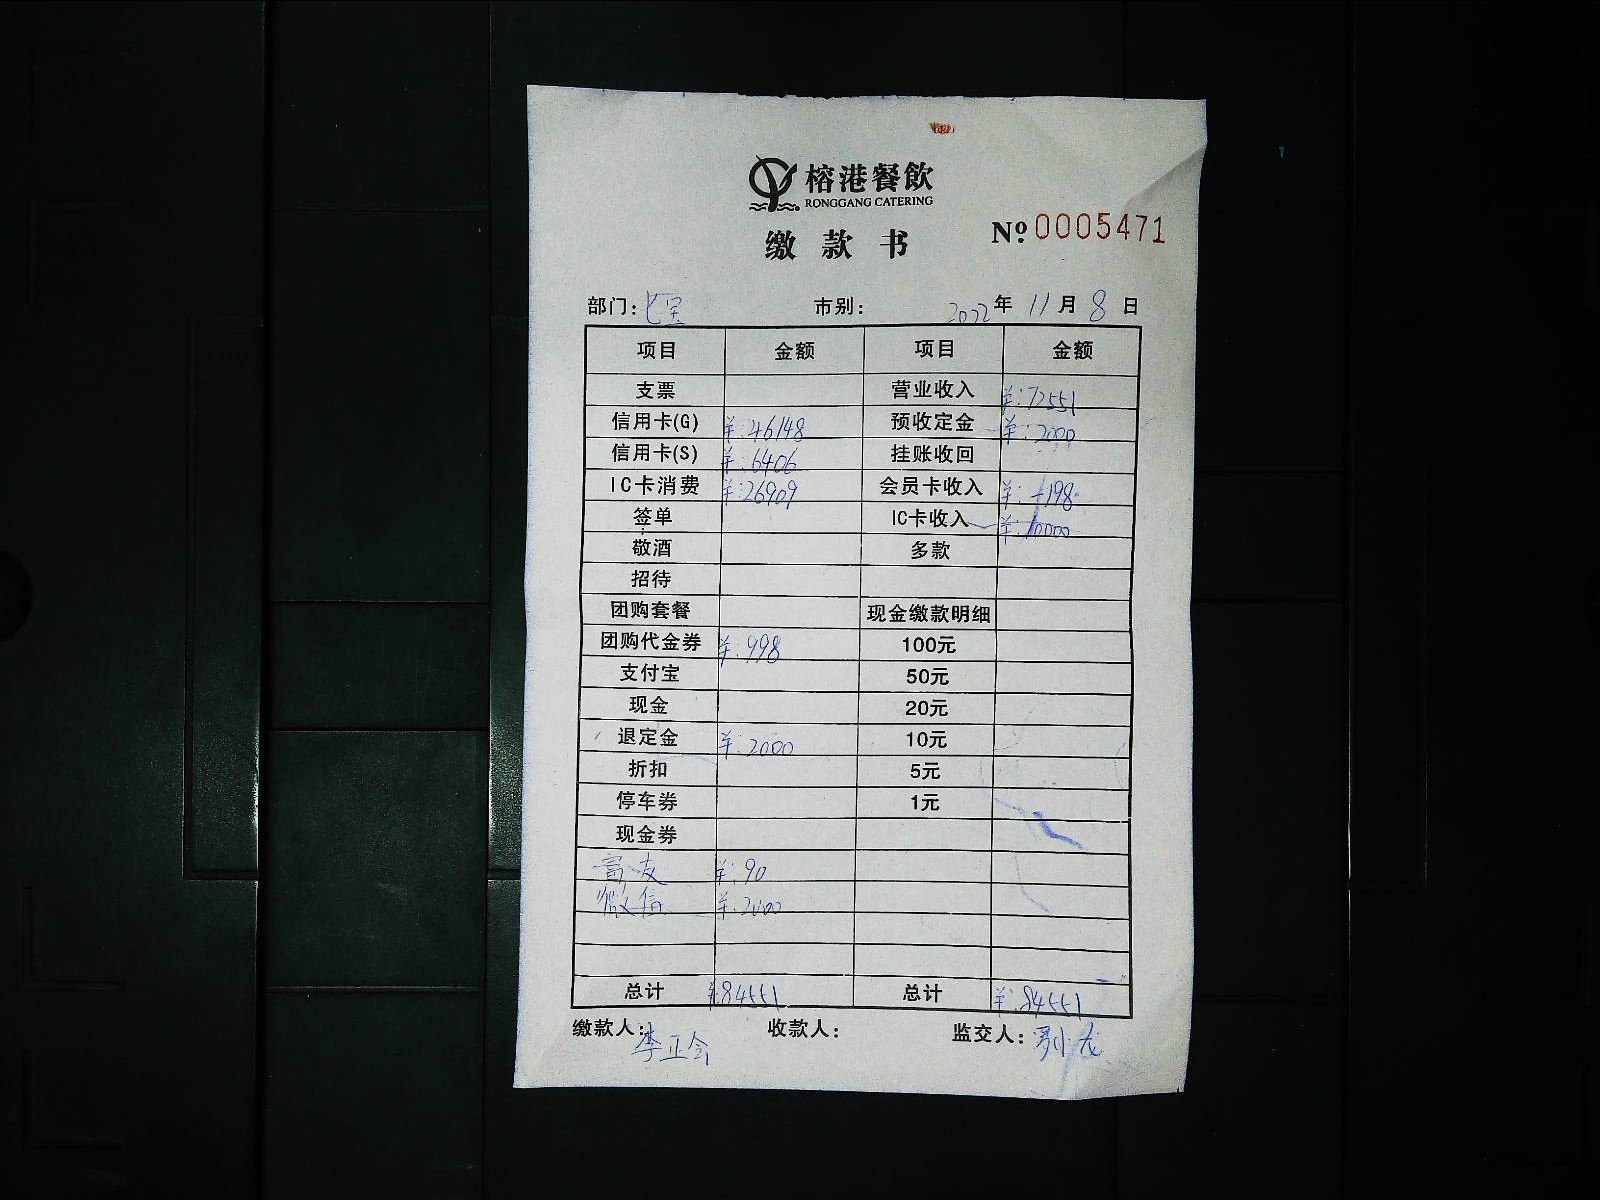 榕港餐飲
RONGGANG CATERING
缴款书
№ 0005471
部门：七宝 市别： 2022年 11月 8日
项目 金额 项目 金额
支票 营业收入 ￥:72551
信用卡(G) ￥:46148 预收定金 ￥:2000
信用卡(S) ￥:6406 挂账收回
IC卡消费 ￥:26909 会员卡收入 ￥:
签单 IC卡收入 ￥:10000
敬酒 多款
招待
团购套餐 现金缴款明细
团购代金券 ￥:998 100元
支付宝 50元
现金 20元
退定金 ￥:2000 10元
折扣 5元
停车券 1元
现金券
富友 ￥:90
微信 ￥:2000
总计 ￥:84551 总计 ￥:84551
缴款人：李正会 收款人： 监交人：